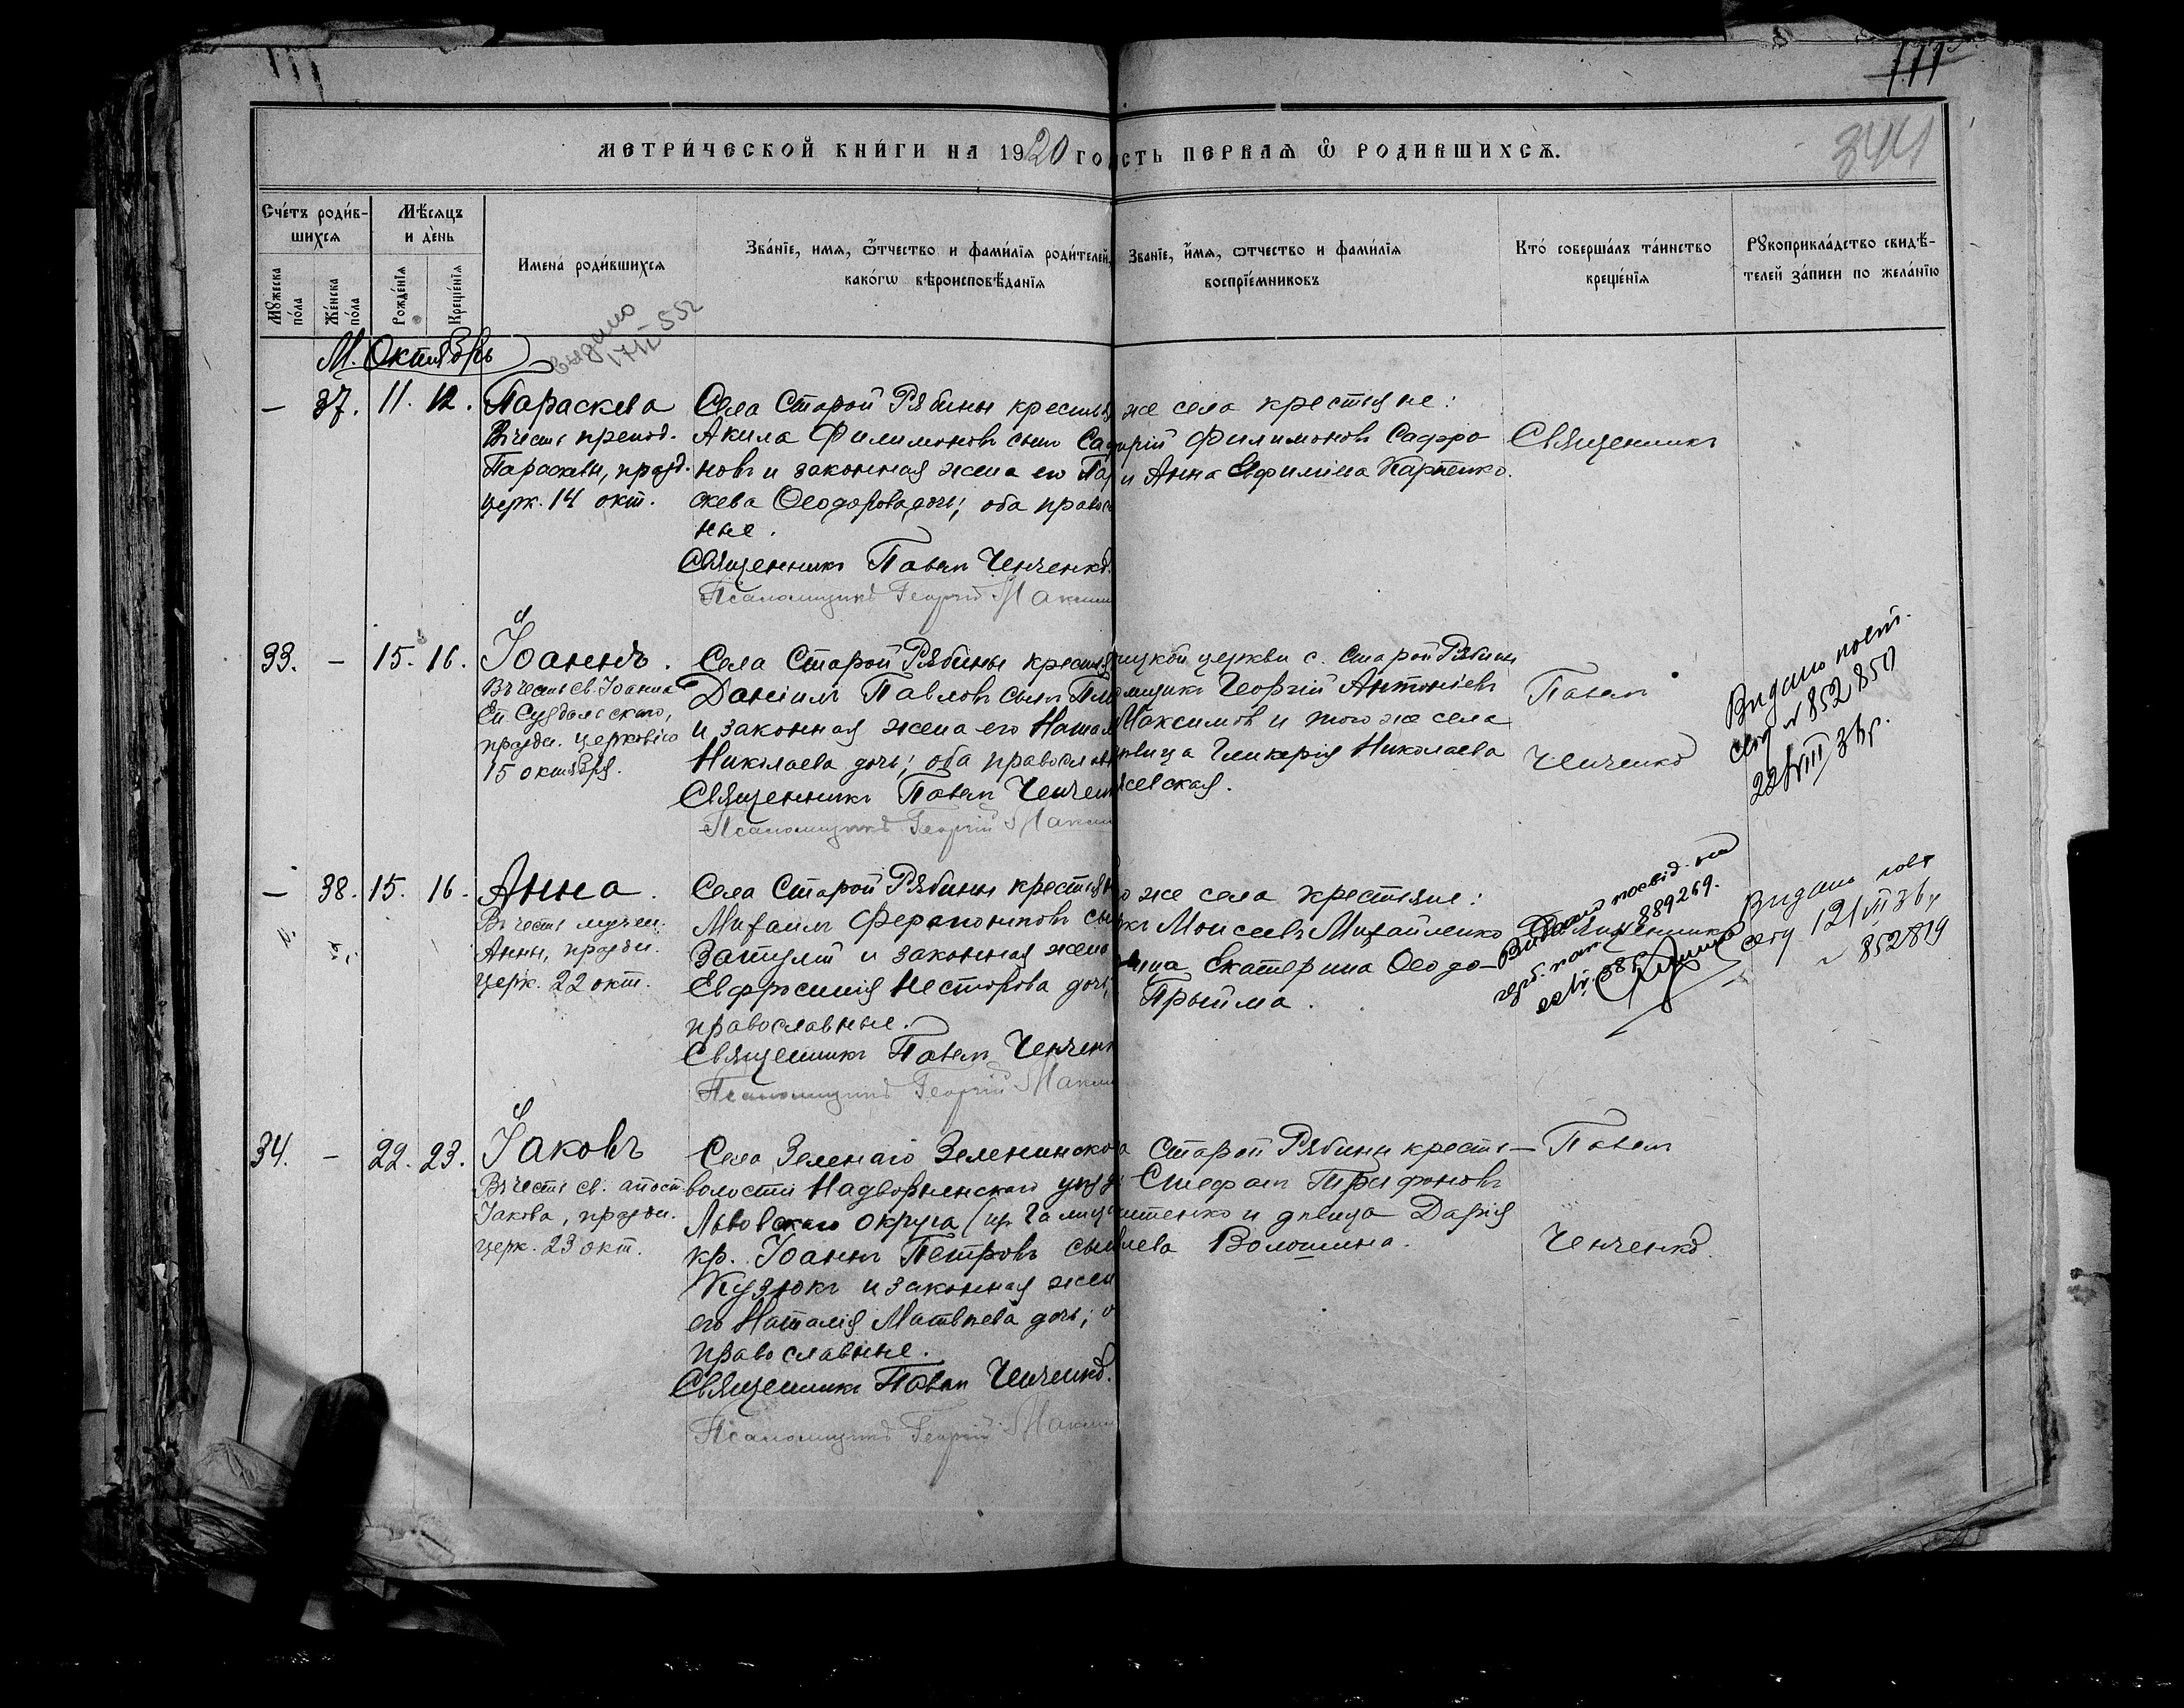 111
метри́ческой кни́ги на 1920 го
сть первая ѿ родившихся.
344
Сче́тъ роди́в-
шихся
Мѣсяцъ
и де́нь
Имена́ роди́вшихся
Зва́нїе, имя, ѻ҆́тчество и фами́лїя роди́телей,
како́гѡ вѣроисповѣ́данїя
Зва́нїе, и҆́мя, ѻтчество и фами́лїя
воспрїе́мниковъ
Кто́ соверша́лъ та́инство
креще́нїя
Рꙋкоприкла́дство свидѣ́-
телей за́писи по жела́нїю
Мꙋ́жеска
по́ла
Же́нска
по́ла
Рожде́нїя
Креще́нїя
М. Октябрь
выдано
552
— 37. 11. 12. Параскева
Въ честь препод.
Параскевы, празд.
церк. 14 окт.
Села Старой Рябины крестья
Акила Филимоновъ сынъ Саф
новъ и законная жена его Пар
скева Ѳеодорова дочь; оба правос
ные.
Священникъ Павелъ Ченченко.
Псаломщикъ Георгій Макси
же села крестьяне:
рій Филимоновъ Сафро-
и Анна Евфиміева Карпенко.
Священникъ
33. — 15. 16. Іоаннъ.
Въ честь св. Іоанна
Еп. Суздальскаго,
праздн. церковію
15 октября.
Села Старой Рябины крестья
Даніилъ Павловъ сынъ
и законная жена его Натал
Николаева дочь; оба православ
Священникъ Павелъ Ченчен
Псаломщикъ Георгій Макси
ицкой церкви с. Старой Рябины
омщикъ Георгій Антоніевъ
Максимовъ и того же села
ѣвица Гликерія Николаева
жевская.
Павелъ
Ченченко
Видано посв.
сер № 852850
22/VIII 36 р.
— 38. 15. 16. Анна.
Въ честь мучен.
Анны, праздн.
церк. 22 окт.
Села Старой Рябины крестьян
Михаилъ Ферапонтовъ сы
и законная жена
Евфросинія Несторова дочь;
православные.
Священникъ Павелъ Ченченк
Псаломщикъ Георгій Макси
о же села крестьяне:
Моисеевъ Михайленко
вица Екатерина Ѳеодо-
Прыйма.
Священникъ
Видано посвід. на
889269.
Видано посв
сер 121 VII 36 р
№ 852819
34. — 22. 23. Іаковъ
Въ честь св. апост.
Іакова, праздн.
церк. 23 окт.
Села Зеленаго Зеленинско
волости Надворненскаго уѣзд
Львовскаго округа (
кр. Іоаннъ Петровъ сын
Кузюкъ и законная жен
его Наталія Матвѣева дочь; о
православные.
Священникъ Павелъ Ченченко.
Псаломщикъ Георгій Макси
а Старой Рябины кресть-
Стефанъ Трифоновъ
енко и дѣвица Дарія
лева Волошина.
Павелъ
Ченченко.